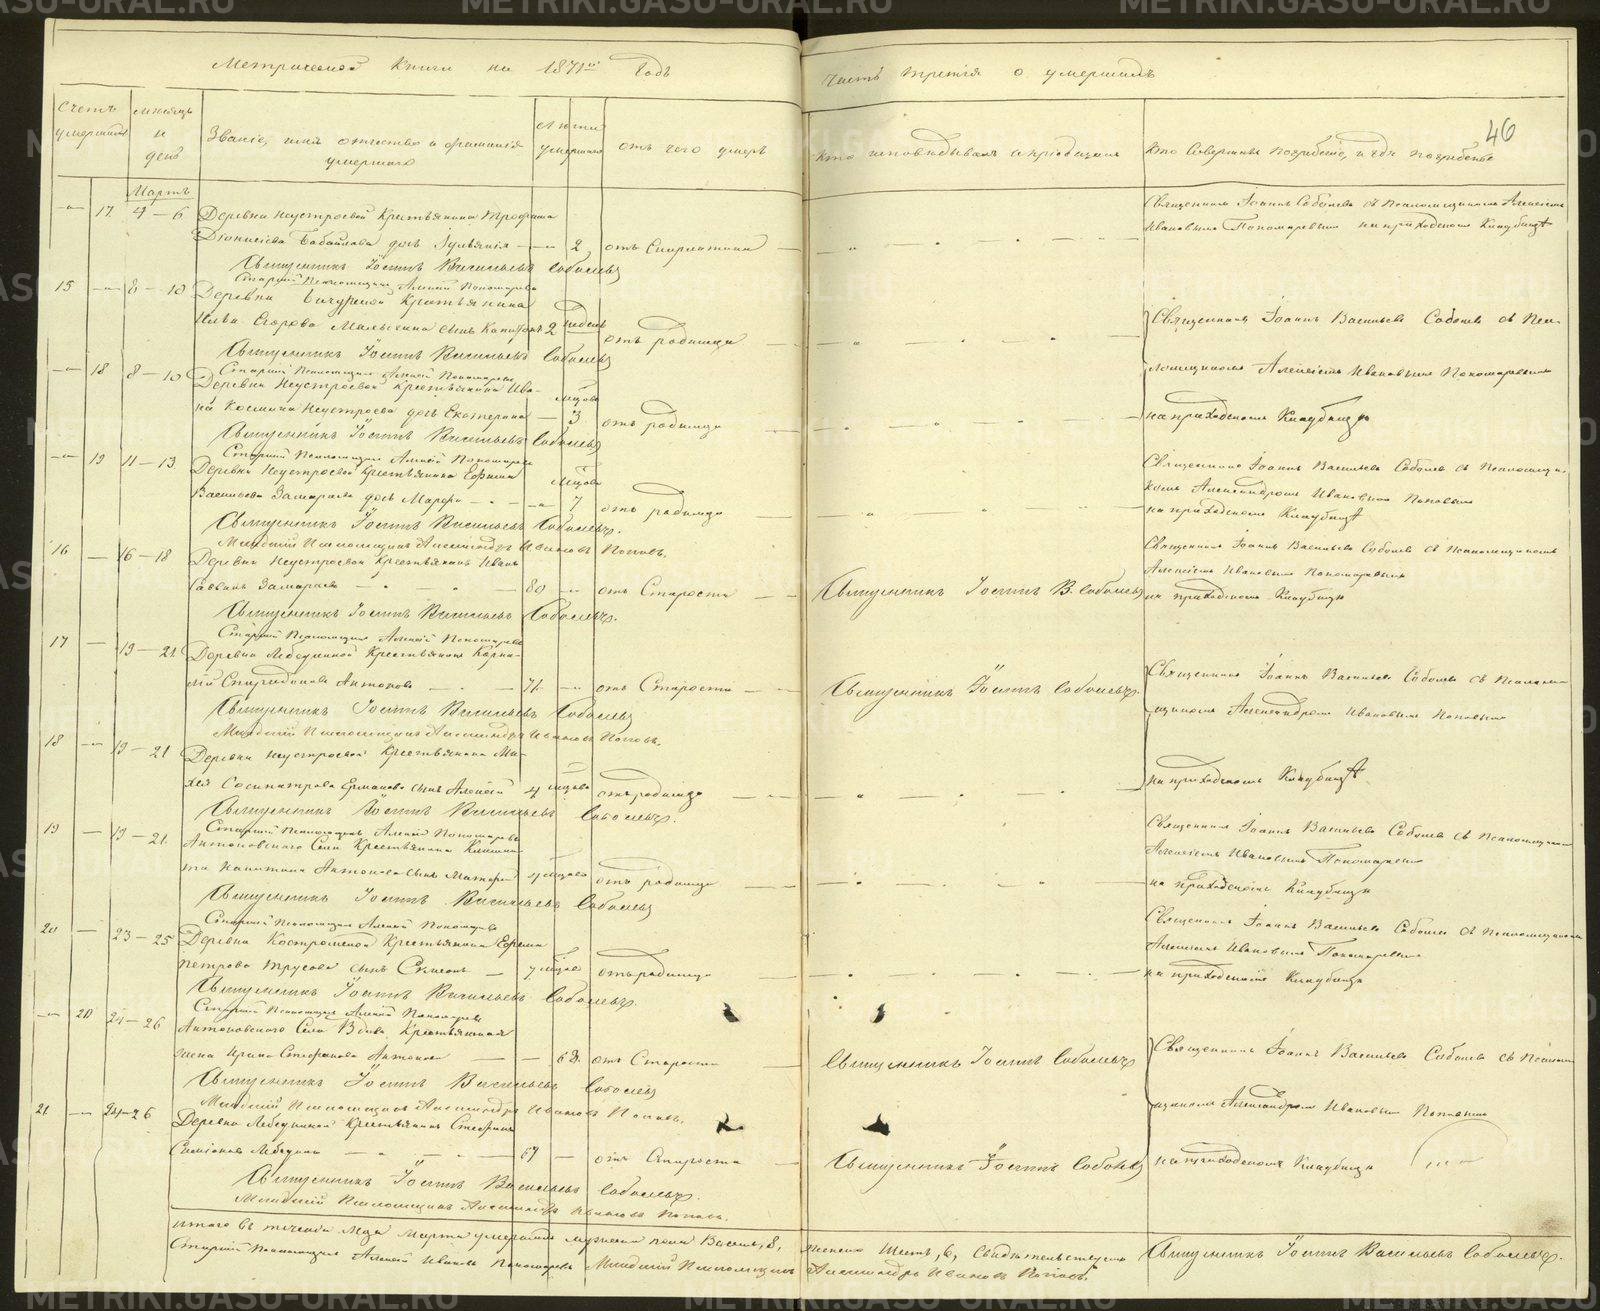 Метрической Книги на 1871й Годъ
часть третія о умершихъ
46
Счетъ умершихъ
мѣсяцъ и день
Званіе, имя отчество и фамилія умершаго
Лѣта умершаго
отъ чего умеръ
Кто исповѣдывалъ и пріобщалъ
Кто Совершалъ погребеніе, и гдѣ погребены
Мартъ
17 4 – 6 Деревни Неустроевой Крестьянина Трофима
Діонисіева Бабайлова дочь Іуліанія 2 отъ Скарлатины
Священникъ Іоаннъ Соболевъ съ Псаломщикомъ Алексѣемъ
Ивановымъ Пономаревымъ на приходскомъ Кладбищѣ
Священникъ Іоаннъ Васильевъ Соболевъ
Старшій Псаломщикъ Алексѣй Пономаревъ
15 8 – 10 Деревни Крестьянина
Егорова сынъ Капитонъ 2 недѣль отъ родимца
Священникъ Іоаннъ Васильевъ Соболевъ съ Псаломщикомъ Алексѣемъ Ивановымъ Пономаревымъ
Священникъ Іоаннъ Васильевъ Соболевъ
Старшій Псаломщикъ Алексѣй Пономаревъ
18 8 – 10 Деревни Неустроевой Крестьянина Ива-
на Космина Неустроева дочь Екатерина 3 мѣсяцов отъ родимца
на приходскомъ Кладбищѣ
Священникъ Іоаннъ Васильевъ Соболевъ
Старшій Псаломщикъ Алексѣй Пономаревъ
19 11 – 13 Деревни Неустроевой Крестьянина Ефима
Васильева Замараева дочь Марфа 7 мѣсяцов отъ родимца
Священникъ Іоаннъ Васильевъ Соболевъ съ Псаломщи-
комъ Александромъ Ивановымъ Поповымъ
на приходскомъ Кладбищѣ
Священникъ Іоаннъ Васильевъ Соболевъ.
Младшій Псаломщикъ Александръ Ивановъ Поповъ.
16 16 – 18 Деревни Неустроевой Крестьянинъ Иванъ
Саввинъ Замараевъ 80 отъ Старости
Священникъ Іоаннъ В. Соболевъ
Священникъ Іоаннъ Васильевъ Соболевъ съ Псаломщикомъ
Алексѣемъ Ивановымъ Пономаревымъ
на приходскомъ Кладбищѣ
Священникъ Іоаннъ Васильевъ Соболевъ.
Старшій Псаломщикъ Алексѣй Пономаревъ
17 19 – 21 Деревни Лебедкиной Крестьянинъ Корни-
лій Спиридоновъ Антоновъ 71 отъ Старости
Священникъ Іоаннъ Соболевъ.
Священникъ Іоаннъ Васильевъ Соболевъ съ Псалом-
щикомъ Александромъ Ивановымъ Поповымъ
Священникъ Іоаннъ Васильевъ Соболевъ
Младшій Псаломщикъ Александръ Ивановъ Поповъ.
18 19 – 21 Деревни Неустроевой Крестьянина Ми-
хея Сосипатрова Ермакова сынъ Алексѣй 4 мѣсяцов отъ родимца
на приходскомъ Кладбищѣ
Священникъ Іоаннъ Васильевъ Соболевъ.
Старшій Псаломщикъ Алексѣй Пономаревъ
19 19 – 21 Антоновскаго Села Крестьянина
Никитина Антонова сынъ 4 мѣсяцов отъ родимца
Священникъ Іоаннъ Васильевъ Соболевъ съ Псаломщикомъ
Алексѣемъ Ивановымъ Пономаревымъ
на приходскомъ Кладбищѣ
Священникъ Іоаннъ Васильевъ Соболевъ
Старшій Псаломщикъ Алексѣй Пономаревъ
20 23 – 25 Деревни Костроминой Крестьянина Ефима
Петрова Трусова сынъ Симеонъ 7 мѣсяцов отъ родимца
Священникъ Іоаннъ Васильевъ Соболевъ съ Псаломщикомъ
Алексѣемъ Ивановымъ Пономаревымъ
на приходскомъ Кладбищѣ
Священникъ Іоаннъ Васильевъ Соболевъ.
Старшій Псаломщикъ Алексѣй Пономаревъ
20 24 – 26 Антоновскаго Села Вдова Крестьянская
жена Ирина Стефанова Антонова 68 отъ Старости
Священникъ Іоаннъ Соболевъ
Священникъ Іоаннъ Васильевъ Соболевъ съ Псалом-
щикомъ Александромъ Ивановымъ Поповымъ
Священникъ Іоаннъ Васильевъ Соболевъ
Младшій Псаломщикъ Александръ Ивановъ Поповъ.
21 24 – 26 Деревни Лебедкиной Крестьянинъ Стефанъ
Симеоновъ Лебедкинъ 67 отъ Старости
Священникъ Іоаннъ Соболевъ
на приходскомъ Кладбищѣ
Священникъ Іоаннъ Васильевъ Соболевъ.
Младшій Псаломщикъ Александръ Ивановъ Поповъ.
итого въ теченіи Мца Марта умершихъ мужеска пола Восемь, 8, женска Шесть, 6, Свидѣтельствуемъ Священникъ Іоаннъ Васильевъ Соболевъ.
Старшій Псаломщикъ Алексѣй Ивановъ Пономаревъ Младшій Псаломщикъ Александръ Ивановъ Поповъ.
METRIKI.GASU-URAL.RU